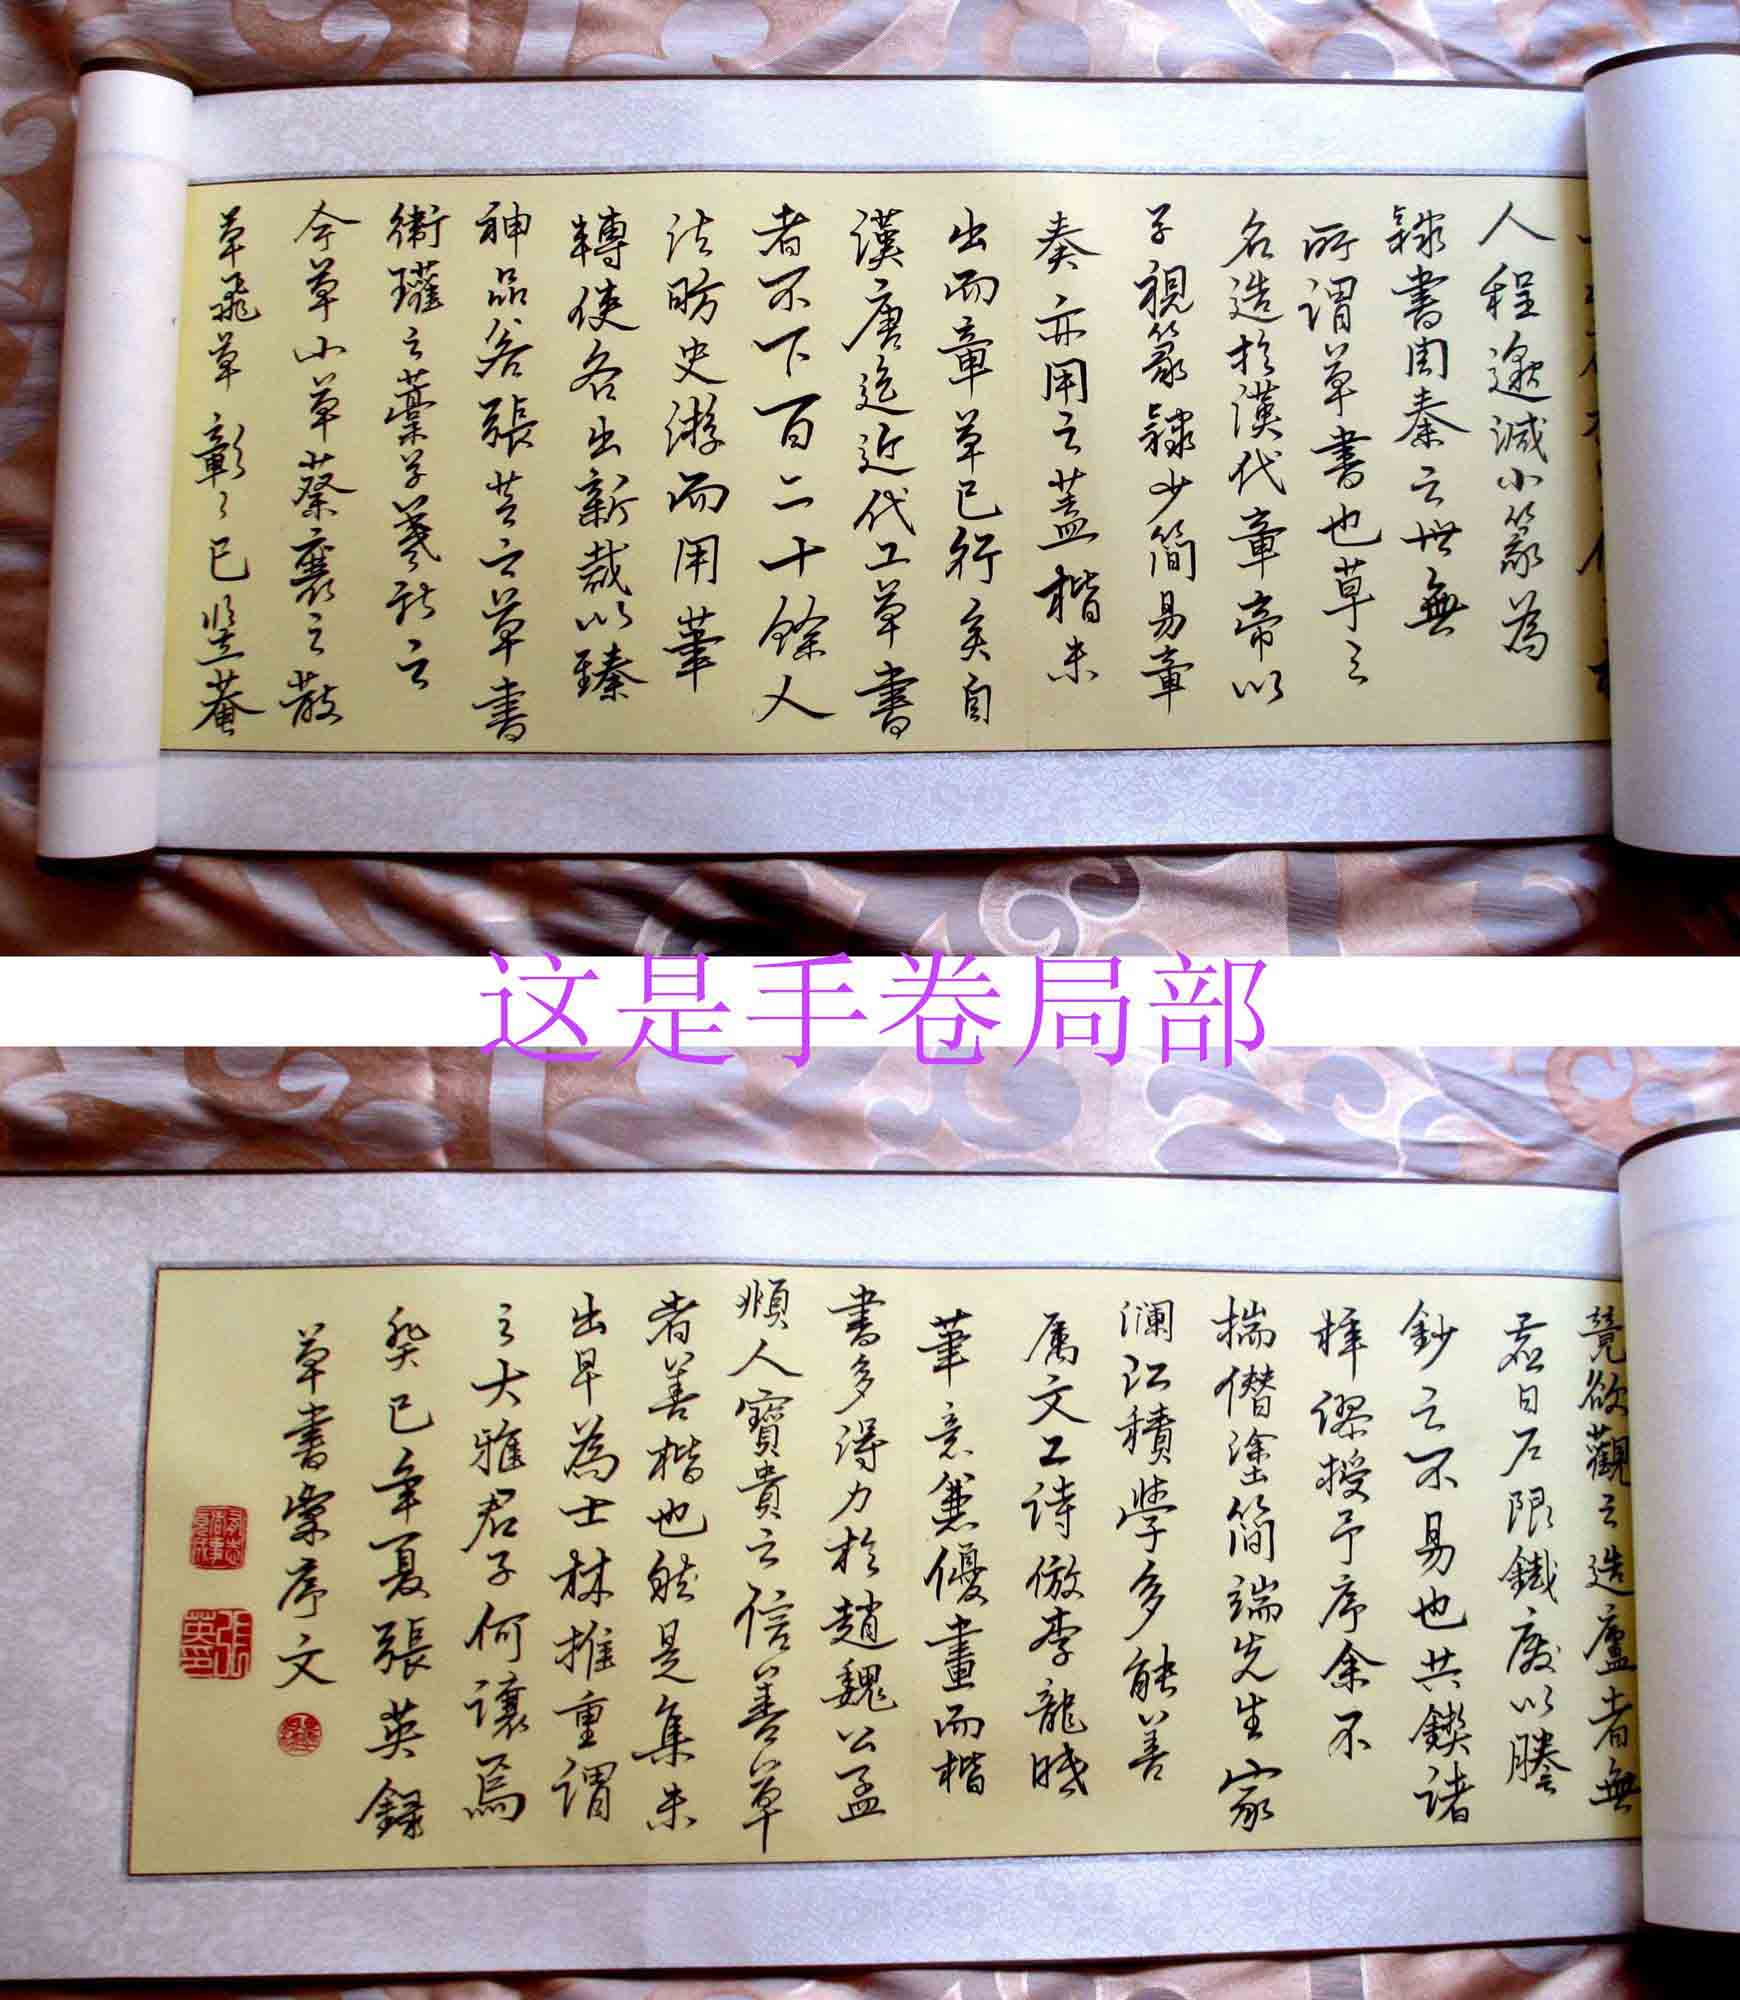 人程邈减小篆為
隸書周秦之世無
所謂草書也草之
名造於漢代章帝以
子視篆隸少簡易章
奏亦用之蓋楷未
出而章草已行矣自
漢唐迄近代工草書
者不下百二十餘人
法昉史游而用筆
轉使各出新裁以臻
神品若張芝之草書
衛瓘之藁草羲獻之
今草小草蔡襄之散
草飛草彰彰已竖菴
这是手卷局部
竟欲觀之造廬者無
若日石限鐵廢以謄
鈔之不易也共鍥諸
梓謬授予序余不
揣僭塗簡端先生家
瀾江積學多能善
属文工诗倣李龍眠
筆意兼優畫而楷
書多得力於趙魏公孟
頫人寶貴之信善草
者善楷也然是集未
出早為士林推重謂
之大雅君子何讓焉
癸巳年夏張英録
草書彙序文